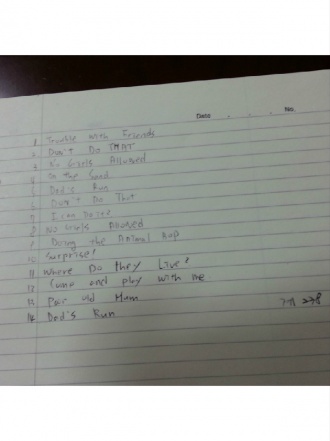 Date . . . No.
1 Trouble with Friends
2 Don't Do THAT
3 No Girls Allowed
4 On the Sand
5 Dad's Run
6 Don't Do That
7 I can Do it!
8 No Girls Allowed
9 Doing the Animal Bop
10 Surprise!
11 Where Do they Live?
12 Come and play with me
13 Poor old Mum
14 Dad's Run
278